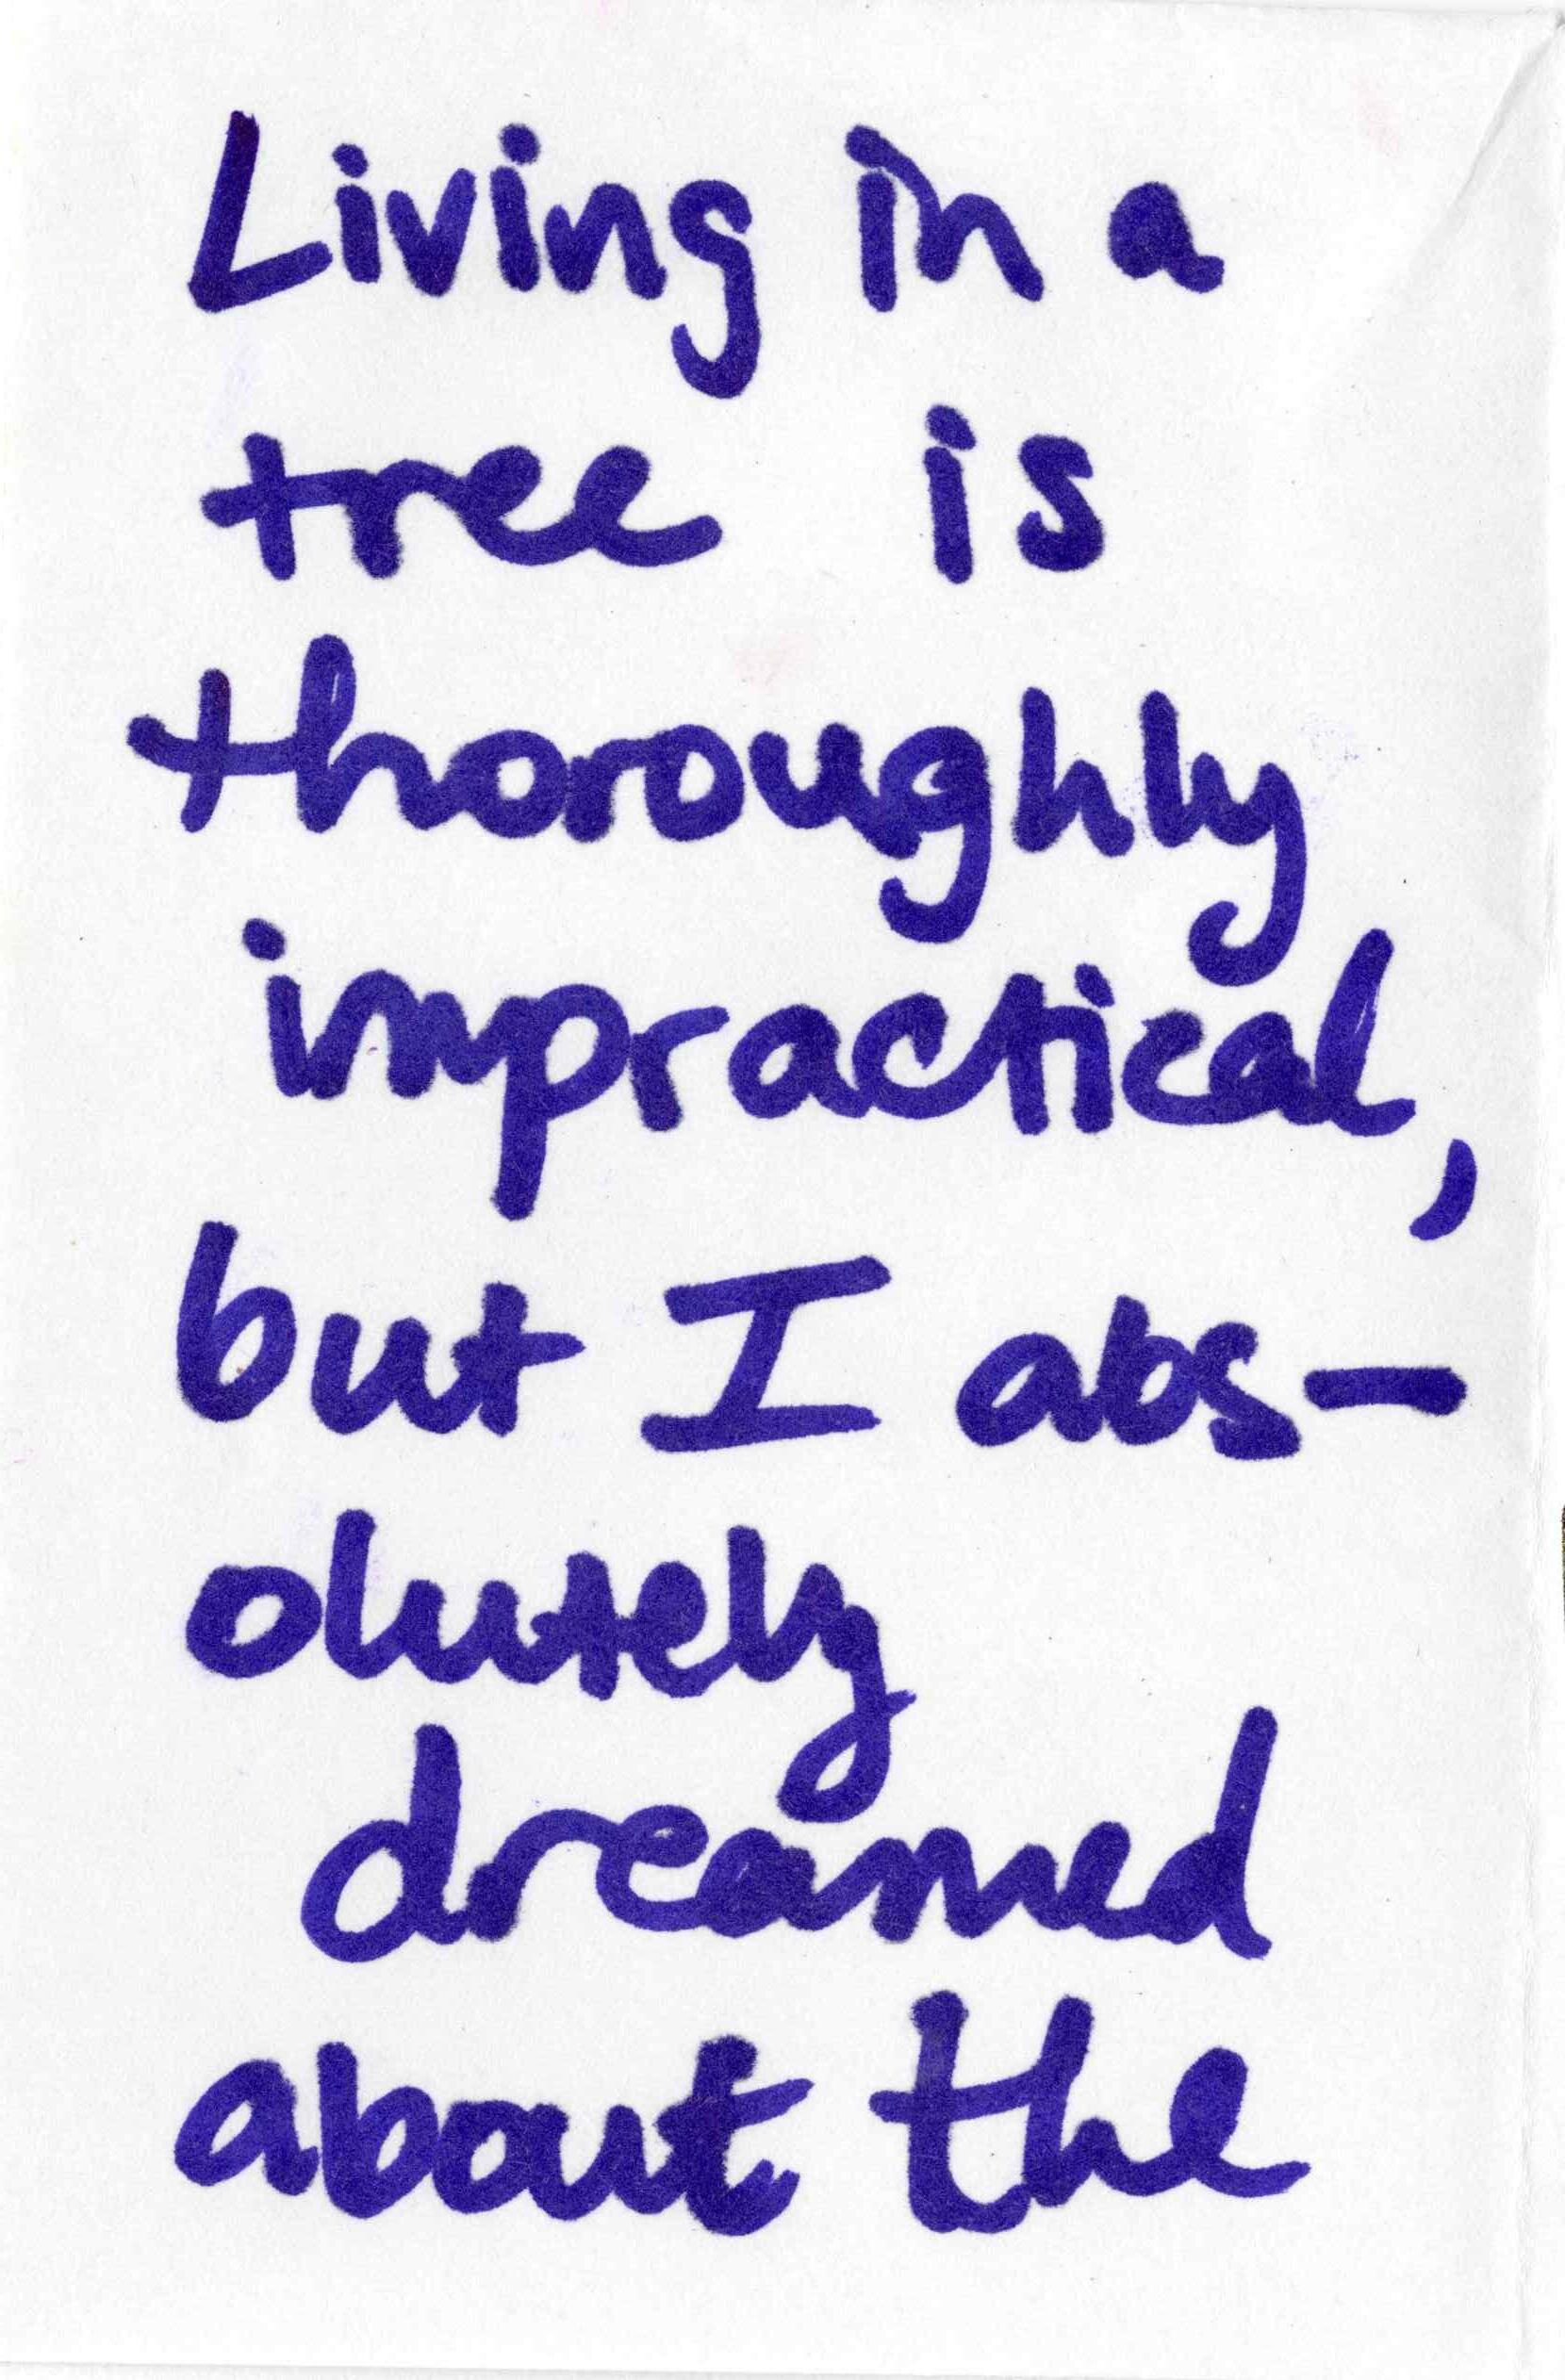 Living in a
tree is
thoroughly
impractical,
but I abs-
olutely
dreamed
about the